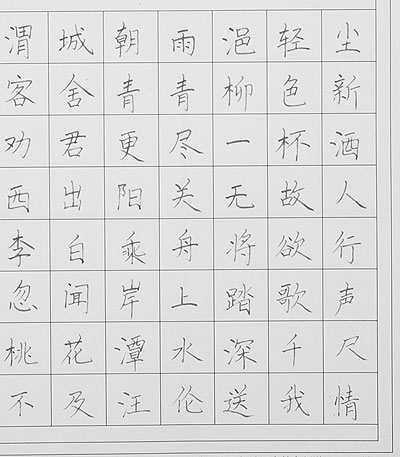 渭城朝雨浥轻尘
客舍青青柳色新
劝君更尽一杯酒
西出阳关无故人
李白乘舟将欲行
忽闻岸上踏歌声
桃花潭水深千尺
不及汪伦送我情